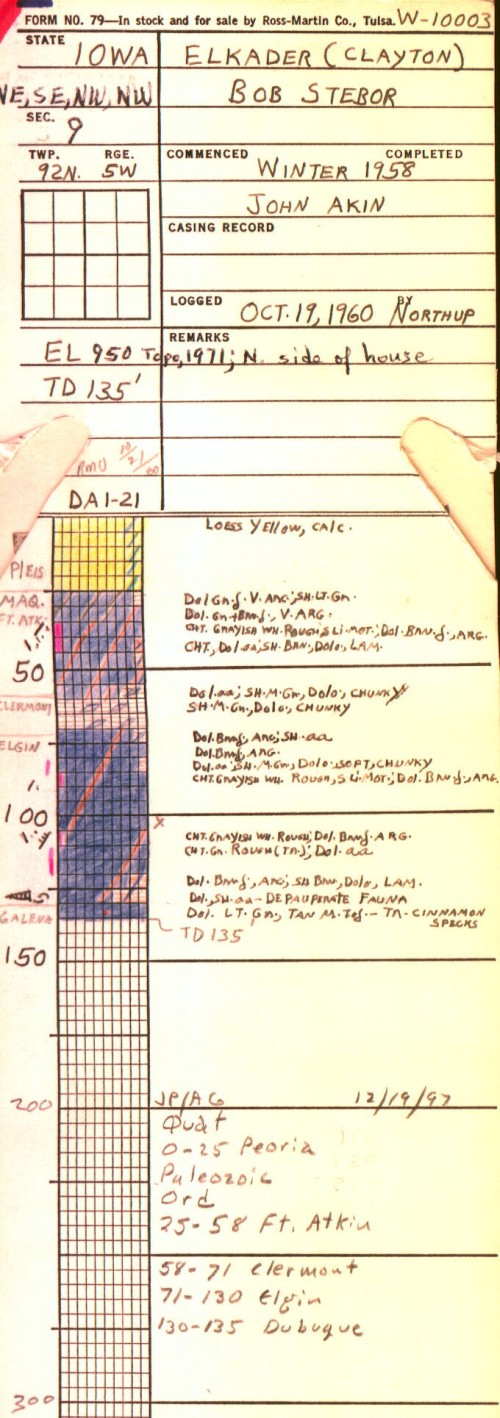 FORM NO. 79—In stock and for sale by Ross-Martin Co., Tulsa. W-10003
STATE IOWA
ELKADER (CLAYTON)
NE, SE, NW, NW
BOB STEBOR
SEC. 9
TWP. 92N. RGE. 5W
COMMENCED WINTER 1958 COMPLETED
JOHN AKIN
CASING RECORD
LOGGED OCT. 19, 1960 BY NORTHUP
REMARKS
EL 950 Topo, 1971; N. side of house
TD 135'
RMU 10/21/60
DA1-21
PlEIS
LOESS YELLOW, CALC.
MAQ.
FT. ATK.
Dol Gn-f. V. ARG; SH. LT. Gn.
Dol. Gn+Brn-f., V. ARG.
CHT. GRAYISH WH. ROUGH, SLI-MOT.; Dol. BRN-f, ARG.
CHT., Dol aa; SH. BRN, Dolo, LAM.
50
CLERMONT
Dol. aa; SH. M. Gn, Dolo., CHUNKY
SH. M. Gn, Dolo, CHUNKY
ELGIN
Dol. Brn-f, ARG; SH. aa
Dol. Brn-f, ARG.
Dol. aa; SH. M. Gn, Dolo SOFT, CHUNKY
CHT. GRAYISH WH. ROUGH, SLI-MOT.; Dol. BRN-f, ARG.
100
x
CHT. GRAYISH WH. ROUGH; Dol. BRN-f. ARG.
CHT. Gn. ROUGH (TR.); Dol. aa
Dol. BRN-f, ARG; SH BRN, Dolo, LAM.
Dol., SH. aa - DEPAUPERATE FAUNA
Dol. LT. Gn, TAN M. - TR. CINNAMON SPECKS
GALENA
TD 135
150
200
JP/AG 12/19/97
Quat
0-25 Peoria
Paleozoic
Ord
25-58 Ft. Atkin
58-71 Clermont
71-130 Elgin
130-135 Dubuque
300